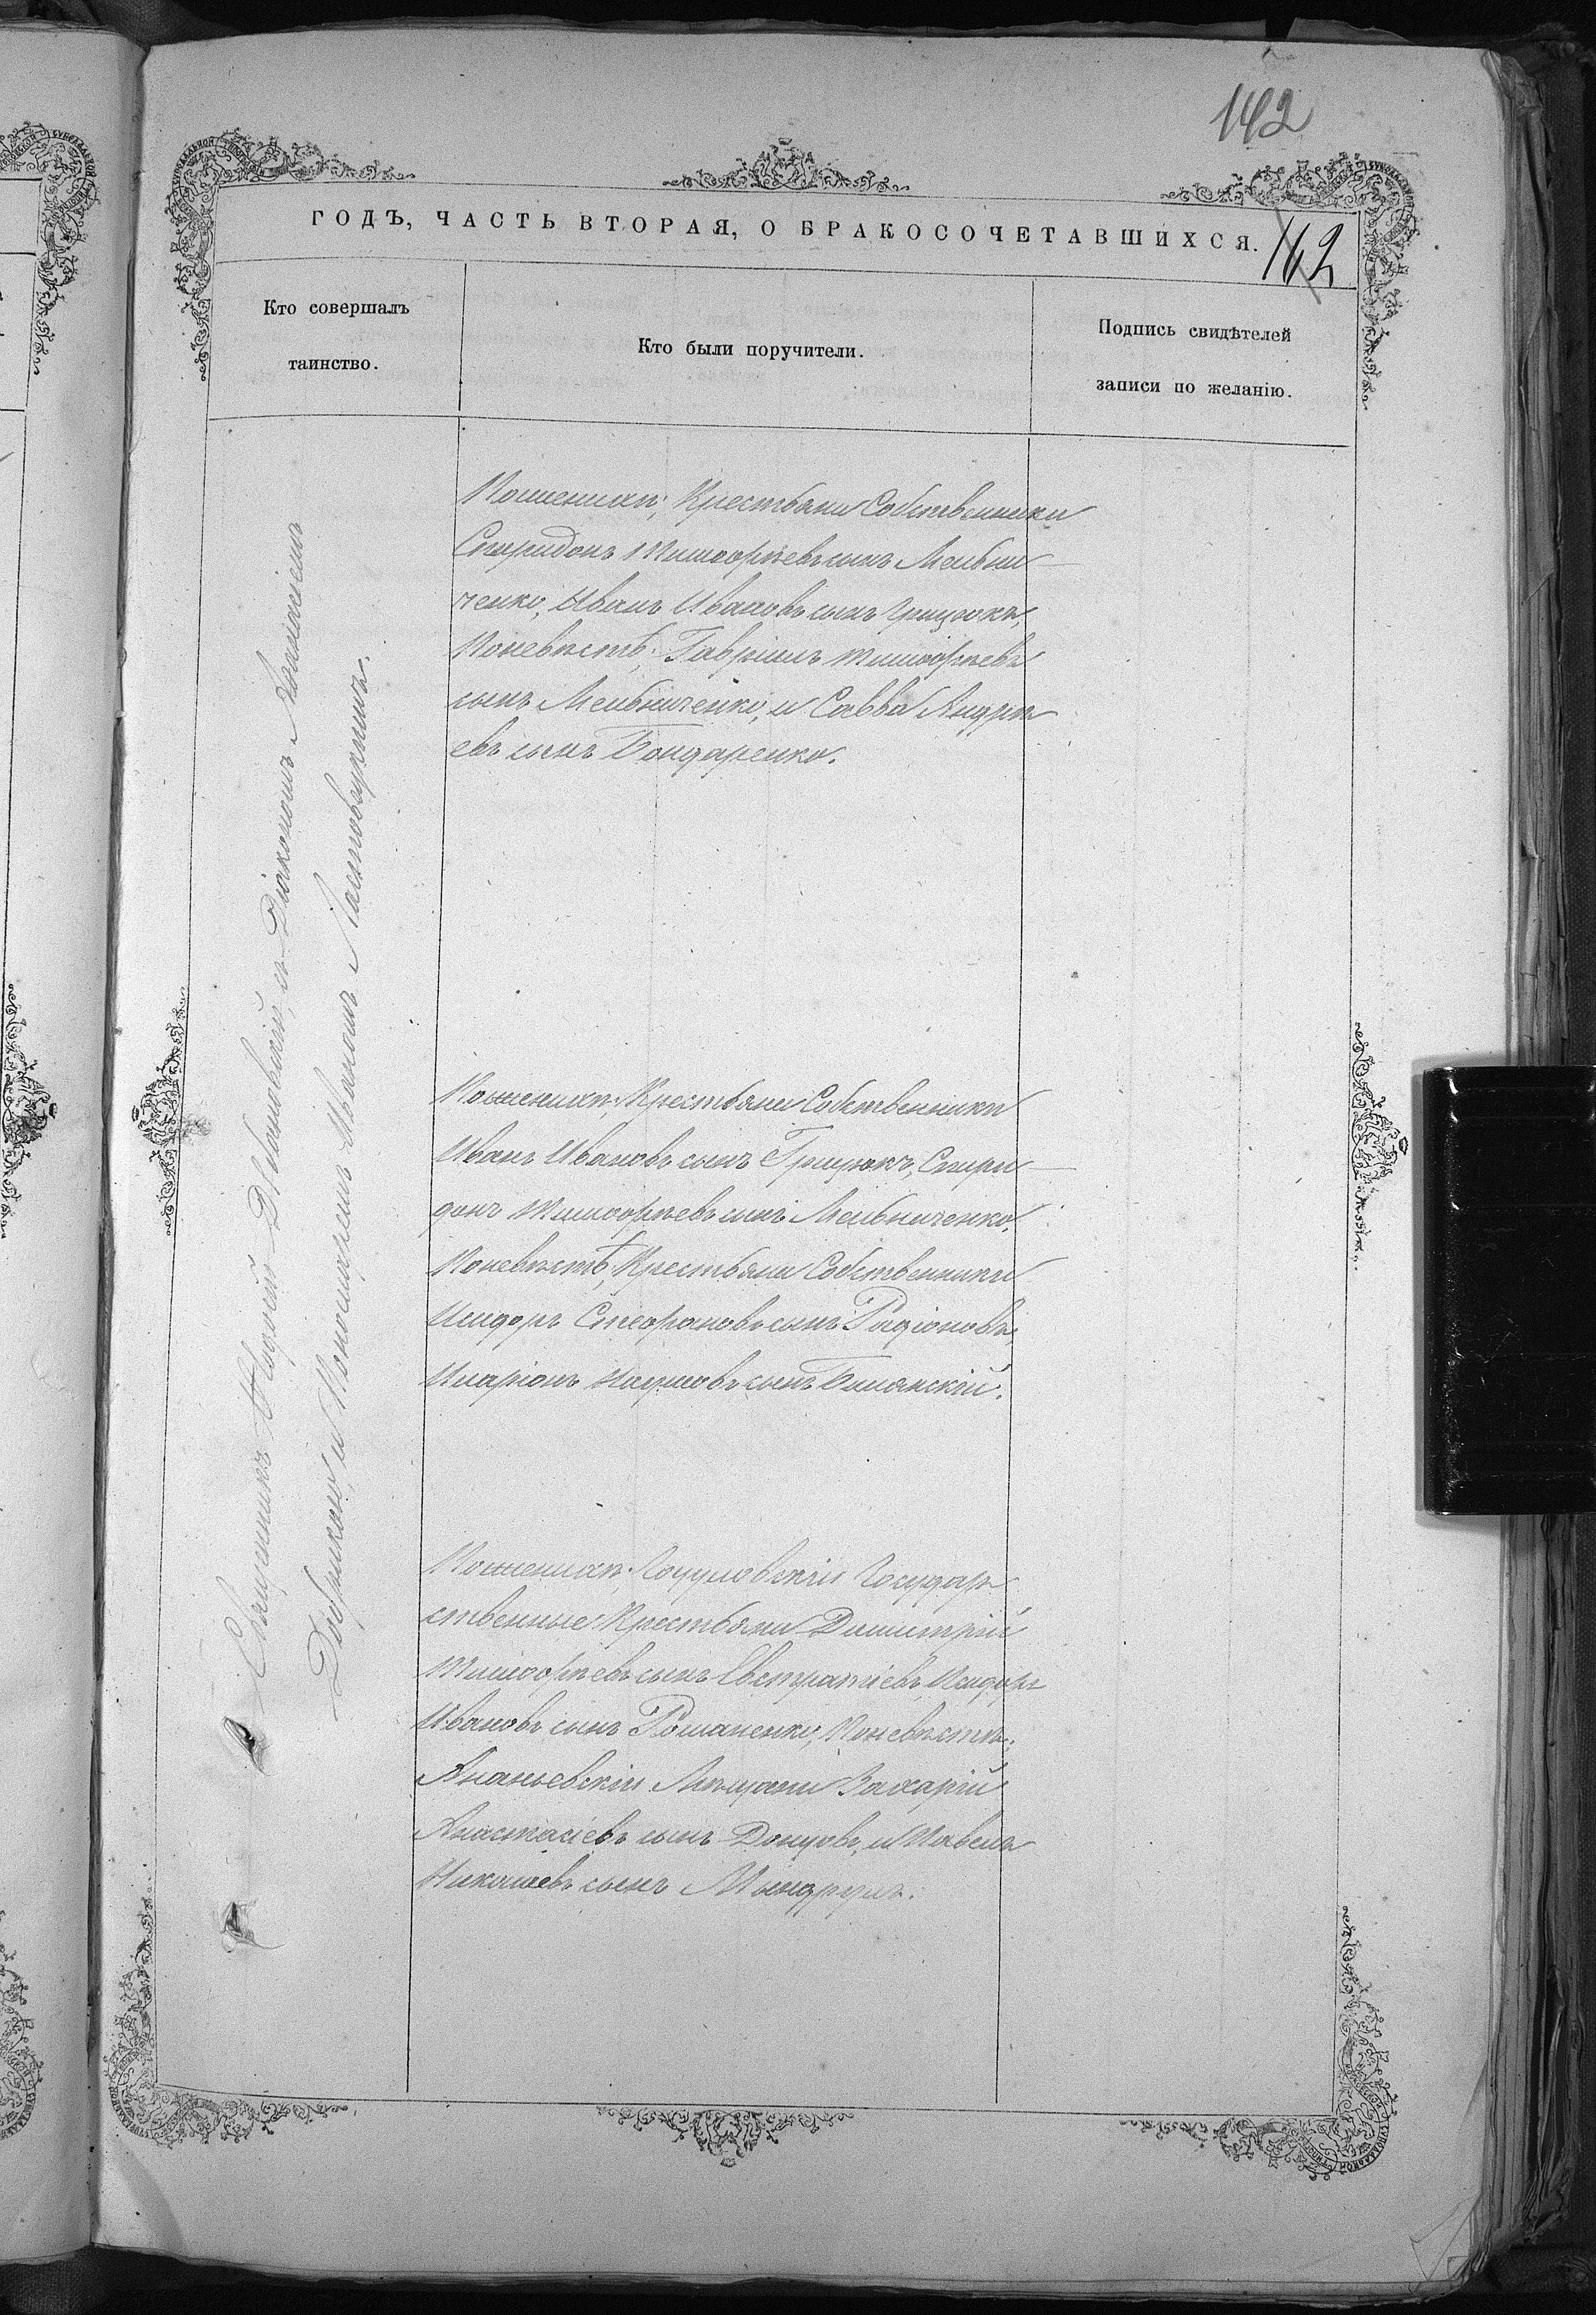 142
ГОДЪ, ЧАСТЬ ВТОРАЯ, О БРАКОСОЧЕТАВШИХСЯ.
142
Кто совершалъ
таинство.
Кто были поручители.
Подпись свидѣтелей
записи по желанію.
Священникъ Діаконом
и Пономаремъ Иваномъ Ластовецкимъ.
По женихѣ; Крестьяни Собственники
Спиридонъ Тимофѣевъ сынъ Мельни
ченко, Иванъ Ивановъ сынъ Грицюкъ,
По невѣстѣ; Гавріилъ Тимофѣевъ
сынъ Мельниченко, и Савва Андре
евъ сынъ Бондаренко.
По женихѣ; Крестьяни Собственники
Иванъ Ивановъ сынъ Грицюкъ, Спири
донъ Тимофѣевъ сынъ Мельниченко,
По невѣстѣ; Крестьяни Собственники
Исидоръ Стефановъ сынъ Радіоновъ,
Иларіонъ Наумовъ сынъ Билянскій.
По женихѣ; Государ
ственные Крестьяни Димитрій
Тимофѣевъ сынъ Евстратіевъ, Исидоръ
Ивановъ сынъ Романенко, По невѣстѣ;
Ананьевскіи Мѣщани Захарій
Анастасіевъ сынъ Донцовъ, и Павелъ
Николаевъ сынъ